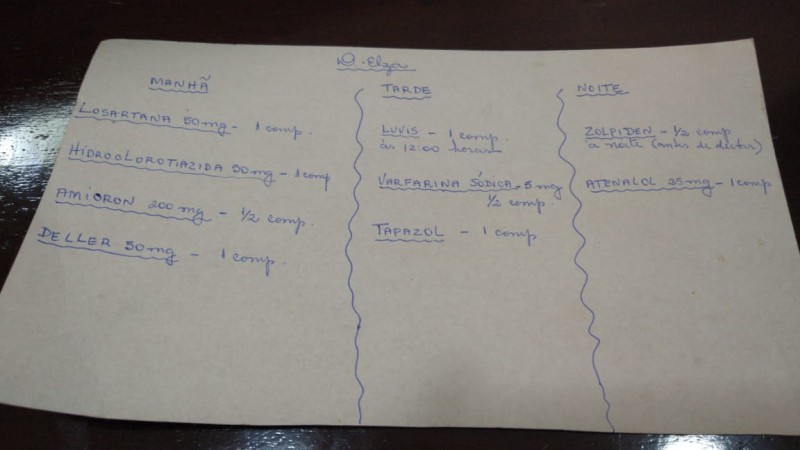 D. Elza
MANHÃ
LOSARTANA 50mg - 1 comp.
HIDROCLOROTIAZIDA 50mg - 1 comp
AMIORON 200 mg - 1/2 comp.
DELLER 50mg - 1 comp.
TARDE
LUVIS - 1 comp.
às 12:00 horas
VARFARINA SÓDICA - 5 mg
1/2 comp.
TAPAZOL - 1 comp
NOITE
ZOLPIDEN - 1/2 comp
a noite (antes de deitar)
ATENALOL 25mg - 1 comp